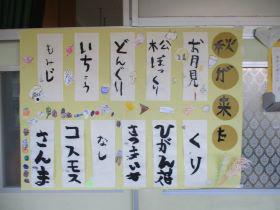 秋が来た
お月見
松ぼっくり
どんぐり
いちょう
もみじ
くり
ひがん花
さつまいも
なし
コスモス
さんま